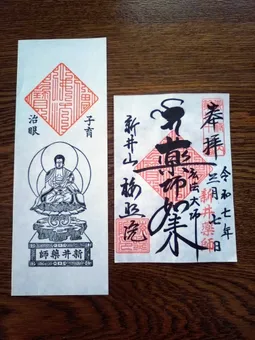 子育
治眼
新井薬師
奉拝
令和七年
三月七日
新井薬師
弘法大師
薬師如来
新井山
梅照院